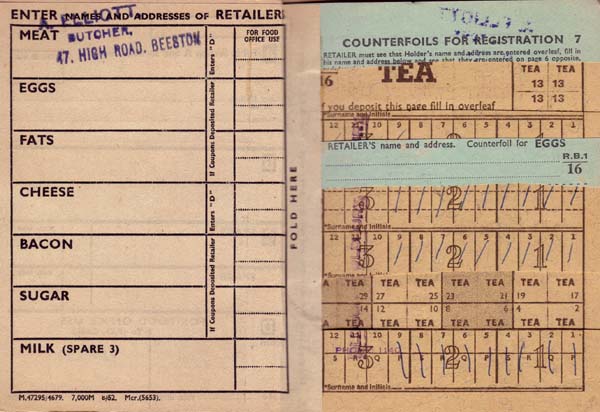 ENTER NAMES AND ADDRESSES OF RETAILER
A. ELLIOTT
BUTCHER,
47. HIGH ROAD. BEESTON
MEAT
FOR FOOD OFFICE USE
Enters "D"
EGGS
If Coupons Deposited Retailer
FATS
CHEESE
Enters "D"
BACON
If Coupons Deposited Retailer
SUGAR
MILK (SPARE 3)
M.47295/4679. 7,000M 6/52. Mcr.(5653).
FOLD HERE
COUNTERFOILS FOR REGISTRATION 7
RETAILER must see that Holder's name and address are entered overleaf, fill in
his name and address below and see that they are entered on page 6 opposite.
16 TEA TEA TEA
13 13
13 13
If you deposit this page fill in overleaf
*Surname and Initials
12 10 9 8 7 6 5 4 3 2 1
RETAILER'S name and address. Counterfoil for EGGS
R.B.1
16
3 2 1
*Surname and Initials
12 10 9 8 7 6 5 4 3 2 1
3 2 1
*Surname and Initials
TEA TEA TEA TEA TEA TEA TEA
29 27 25 23 21 19 17
14 12 10 8 6 4 2
TEA TEA TEA TEA TEA TEA TEA
12 10 9 8 7 6 5 4 3 2 1
PHONE
3 2 1
S R Q P S R Q P S R Q P
*Surname and Initials